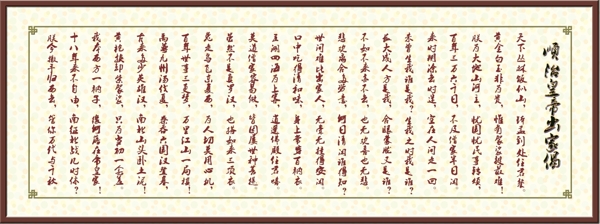 順治皇帝出家偈
天下丛林饭似山，钵盂到处任君餐。
黄金白玉非为贵，惟有袈裟披最难！
朕为大地山河主，忧国忧民事转烦，
百年三万六千日，不及僧家半日闲。
来时糊涂去时迷，空在人间走一回。
未曾生我谁是我？生我之时我是谁？
长大成人方是我，合眼朦胧又是谁？
不如不来亦不去，也无欢喜也无悲
悲欢离合多劳虑，何日清闲谁得知？
世间难比出家人，无牵无挂得安闲
口中吃得清和味，身上常穿百衲衣
五湖四海为上客，逍遥佛殿任君嘻
莫道僧家容易做，皆因屡世种菩提
虽然不是真罗汉，也搭如来三顶衣
兔走乌飞东复西，为人切莫用心机
百年世事三更梦，万里江山一局棋！
禹尊九州汤伐夏，秦吞六国汉登基，
古来多少英雄汉，南北山头卧土泥！
黄袍换却紫袈裟，只为当初一念差。
我本西方一衲子，缘何落在帝皇家！
十八年来不自由，南征北战几时休？
朕今撒手归西去，管你万代与千秋。